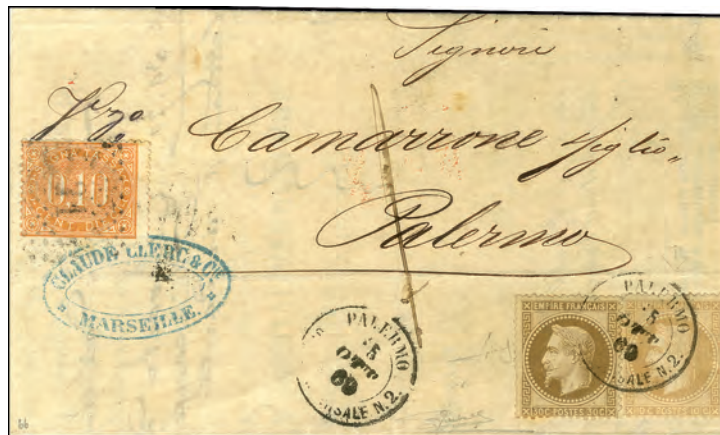 Signori
Camarrone figlio
Palermo
010
CLAUDE CLERC & Cie
MARSEILLE.
PALERMO
OTT
69
N.2.
EMPIRE FRANÇAIS
30C POSTES 30C
PALERMO
OTT
69
SALE N.2.
66